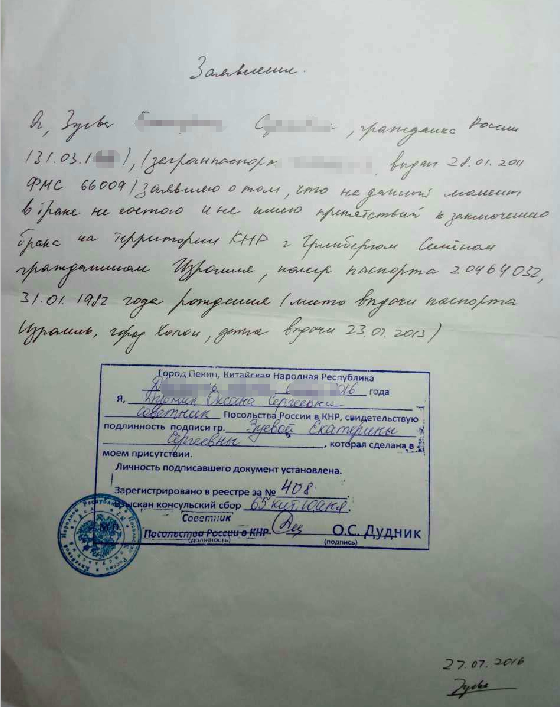 Заявление.
Я, Зуева, гражданка России
(31.03.1), (загранпаспорт выдан 28.01.2011
ФМС 66009) Заявляю о том, что на данный момент
в браке не состою и не имею препятствий к заключению
брака на территории КНР с Гринбергом Семёном
гражданином Израиля, номер паспорта 20464032,
31.01.1982 года рождения (место выдачи паспорта
Израиль, город дата выдачи 23.01.2013)
Город Пекин, Китайская Народная Республика
2016 года
Я, Дудник Оксана Сергеевна
советник Посольства России в КНР, свидетельствую
подлинность подписи гр. Зуевой Екатерины
Сергеевны, которая сделана в
моем присутствии.
Личность подписавшего документ установлена.
Зарегистрировано в реестре за № 408
Взыскан консульский сбор 65 кит. юаня
Советник
Посольства России в КНР О.С. Дудник
(должность) (подпись)
27.07.2016
Зуева